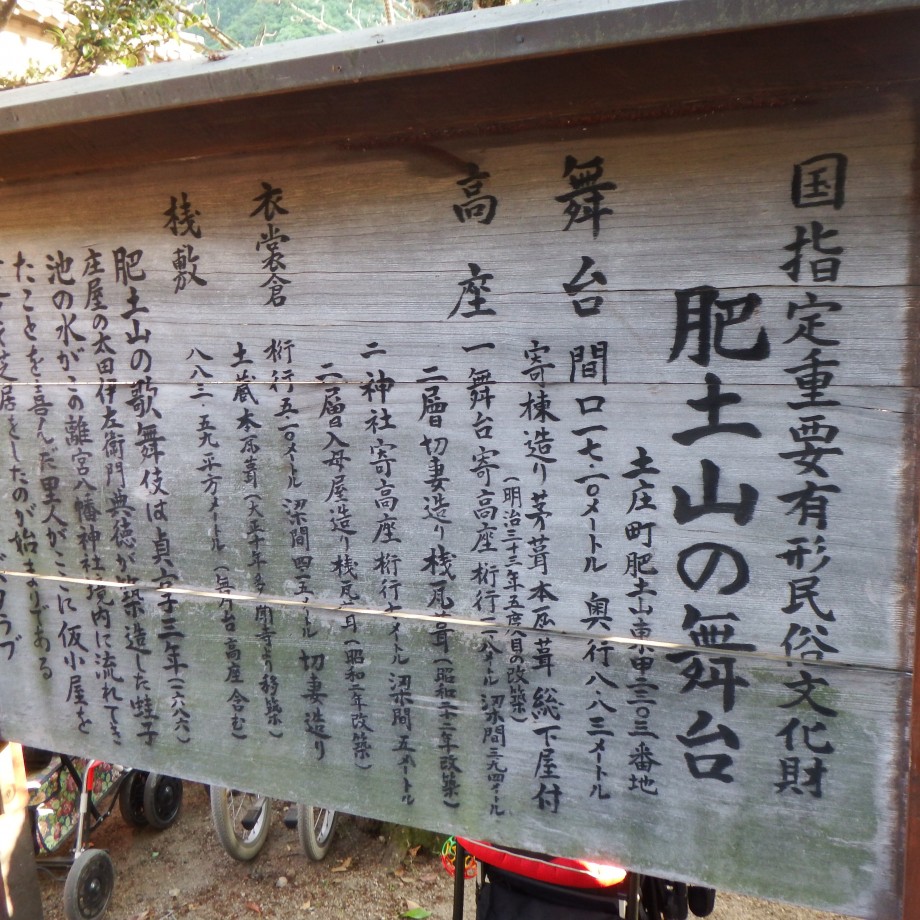 国指定重要有形民俗文化財
肥土山の舞台
土庄町肥土山東甲二二〇三番地
舞台 間口一七・一〇メートル 奥行八・八三メートル
寄棟造り茅葺本瓦葺 総下屋付
(明治三十三年五度目の改築)
高座 一 舞台寄高座 桁行一一・八メートル 梁間三・九四メートル
二層切妻造り桟瓦葺(昭和二十二年改築)
二 神社寄高座 桁行七メートル 梁間五メートル
二層入母屋造り桟瓦葺(昭和二年改築)
衣裳倉 桁行五・一〇メートル 梁間四・一五メートル 切妻造り
土蔵本瓦葺(大正十年多聞寺より移築)
桟敷 八八三・五九平方メートル(舞台高座含む)
肥土山の歌舞伎は貞享三年(一六八六)
庄屋の太田伊左衛門典徳が築造した蛙子
池の水がこの離宮八幡神社境内に流れてき
たことを喜んだ里人がここに仮小屋を
芝居をしたのが始まりである